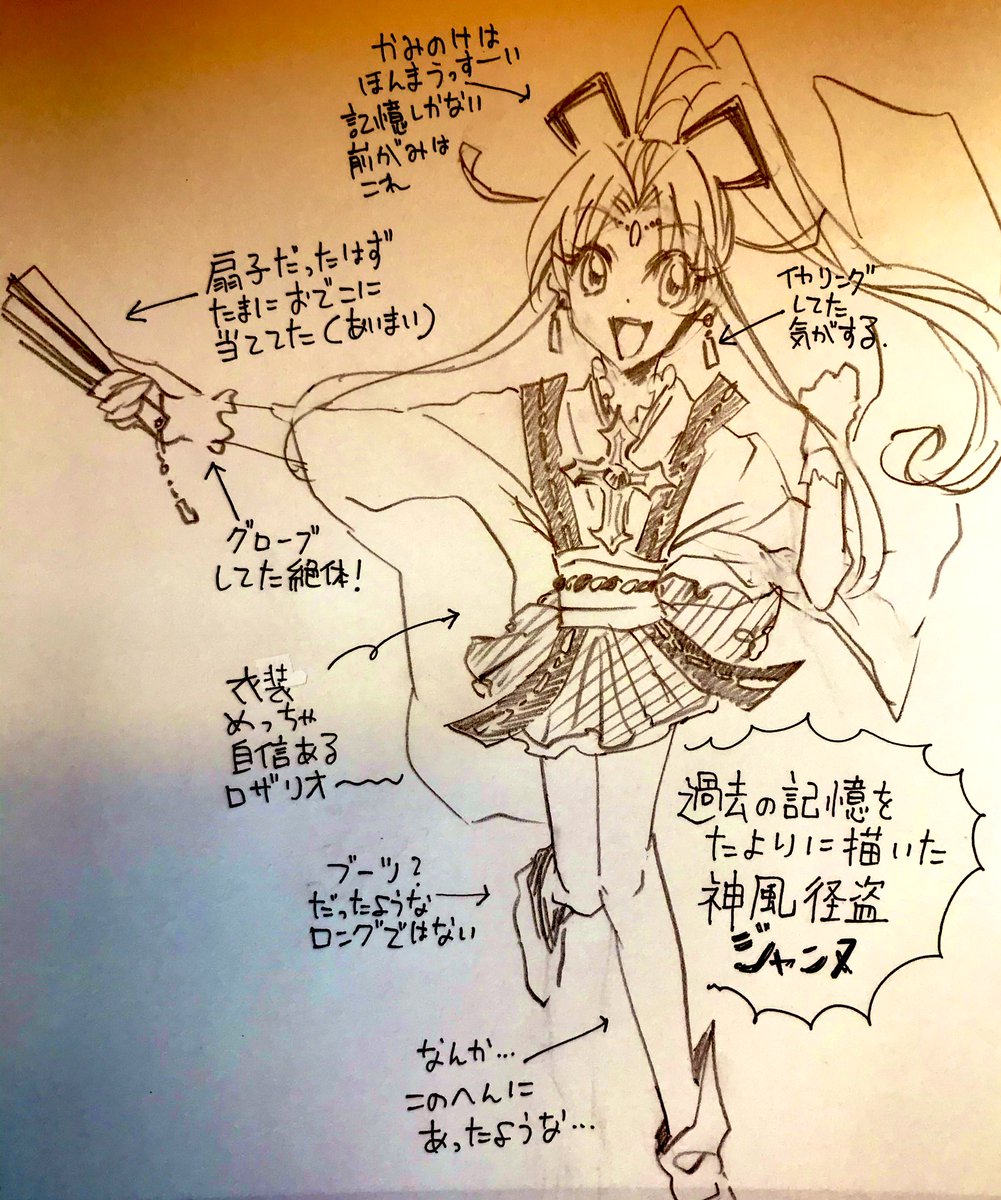 かみのけは
ほんまうっすーい
記憶しかない
前がみは
これ
扇子だったはず
たまにおでこに
当ててた(あいまい)
イヤリング
してた
気がする.
グローブ
してた絶体!
衣装
めっちゃ
自信ある
ロザリオ〜
ブーツ?
だったような
ロングではない
過去の記憶を
たよりに描いた
神風径盗
ジャンヌ
なんか…
このへんに
あったような…